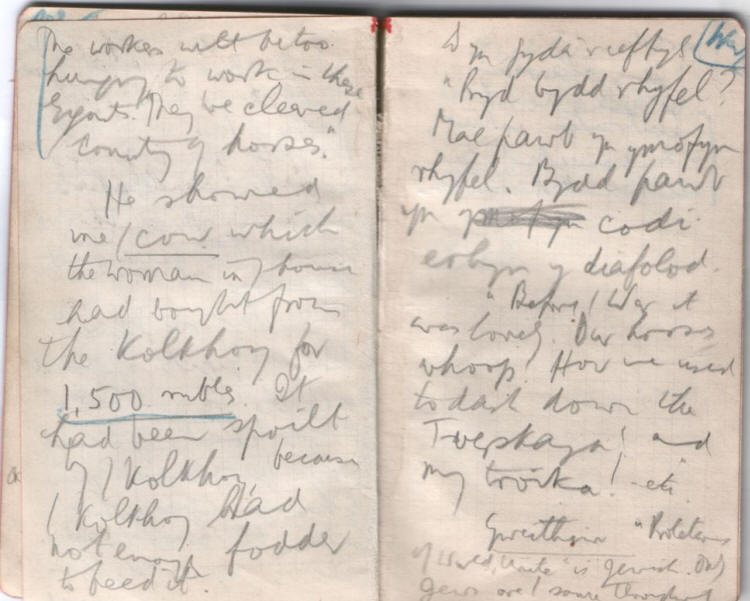 The workers will be too
hungry to work in these
"They've cleared
country of horses."
He showed
me / cow which
the woman in / house
had bought from
the Kolkhoz for
1,500 roubles. It
had been spoilt
by / Kolkhoz, because
/ Kolkhoz had
not enough fodder
to feed it.
yn gyda
"Pryd bydd rhyfel?
Mae pawb yn ymofyn
rhyfel. Bydd pawb
yn codi
erbyn y diafolod.
"Before / War it
was lovely. Our horses
whoop! How we used
to dash down the
Tverskaya! and
my troika! etc.
"Proletarians
of World, Unite" is Jewish. Only
Jews are / same throughout